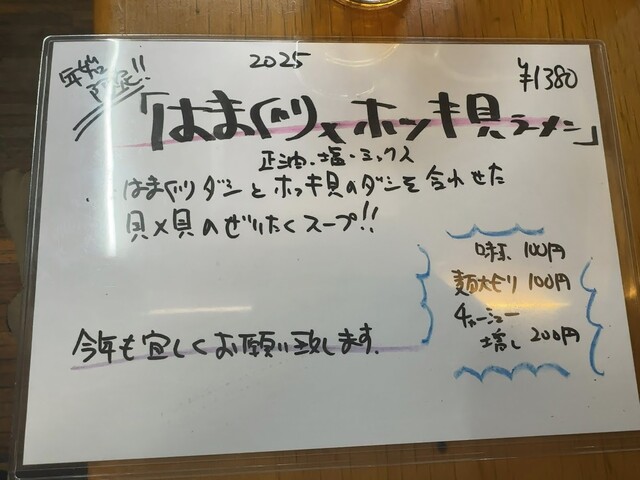 2025
年始限定!!
¥1380
「はまぐり×ホッキ貝ラーメン」
正油・塩・ミックス
はまぐりダシとホッキ貝のダシを合わせた
貝×貝のぜいたくスープ!!
味玉 100円
麺大モリ 100円
チャーシュー
増し 200円
今年も宜しくお願い致します.